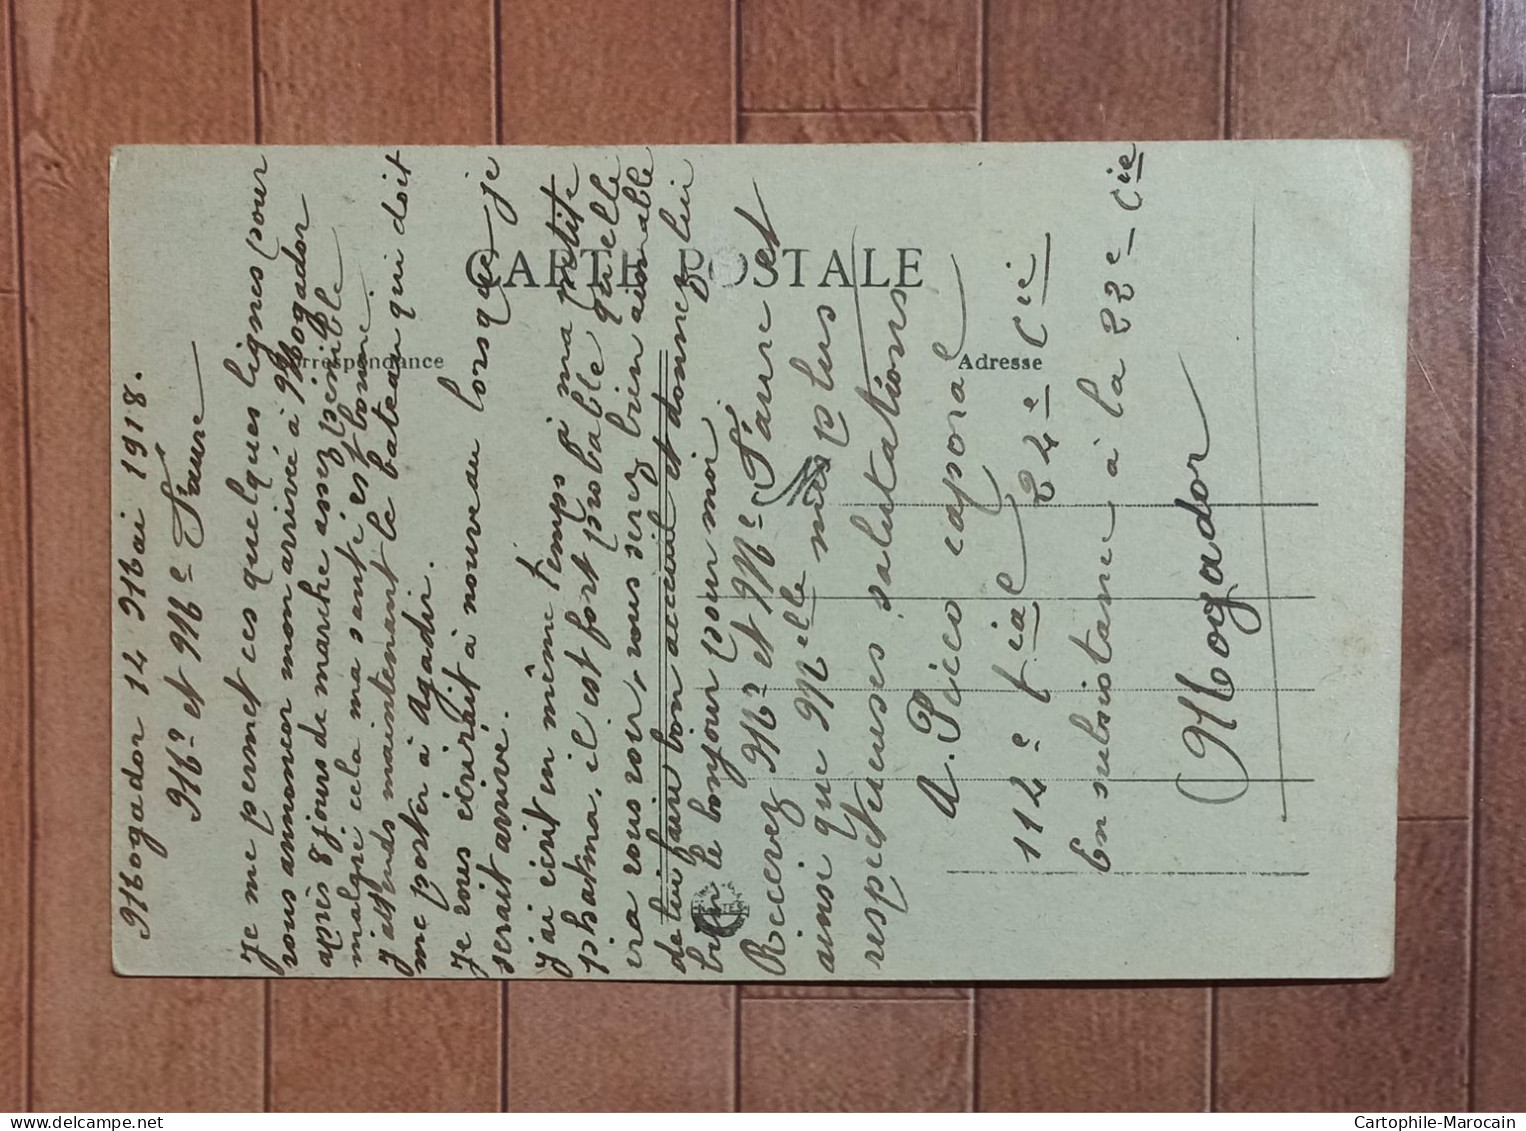 Mogador 14 Mai 1918.
Mr et Me Faure
Je me permet ces quelques lignes pour
vous annoncer mon arrivée à Mogador
après 8 jours de marche assez pénible
malgré cela ma santé est bonne.
J'attends maintenant le bateau qui doit
me porter à Agadir.
Je vous écrirait à nouveau lorsque je
serait arrivé.
J'ai écrit en même temps à ma petite
phatma, il est fort probable quelle
ira vous voir, vous serez bien aimable
de lui faire bon accueil et donnez lui
bien le bonjour pour moi.
Recevez Mr et Me Faure et
ainsi que Melle mes plus
respectueuses salutations
A. Picco caporal
114e tial 24e Cie
En subsistance à la 22e Cie
Mogador
CARTE POSTALE
Correspondance
Adresse
Cartophile-Marocain